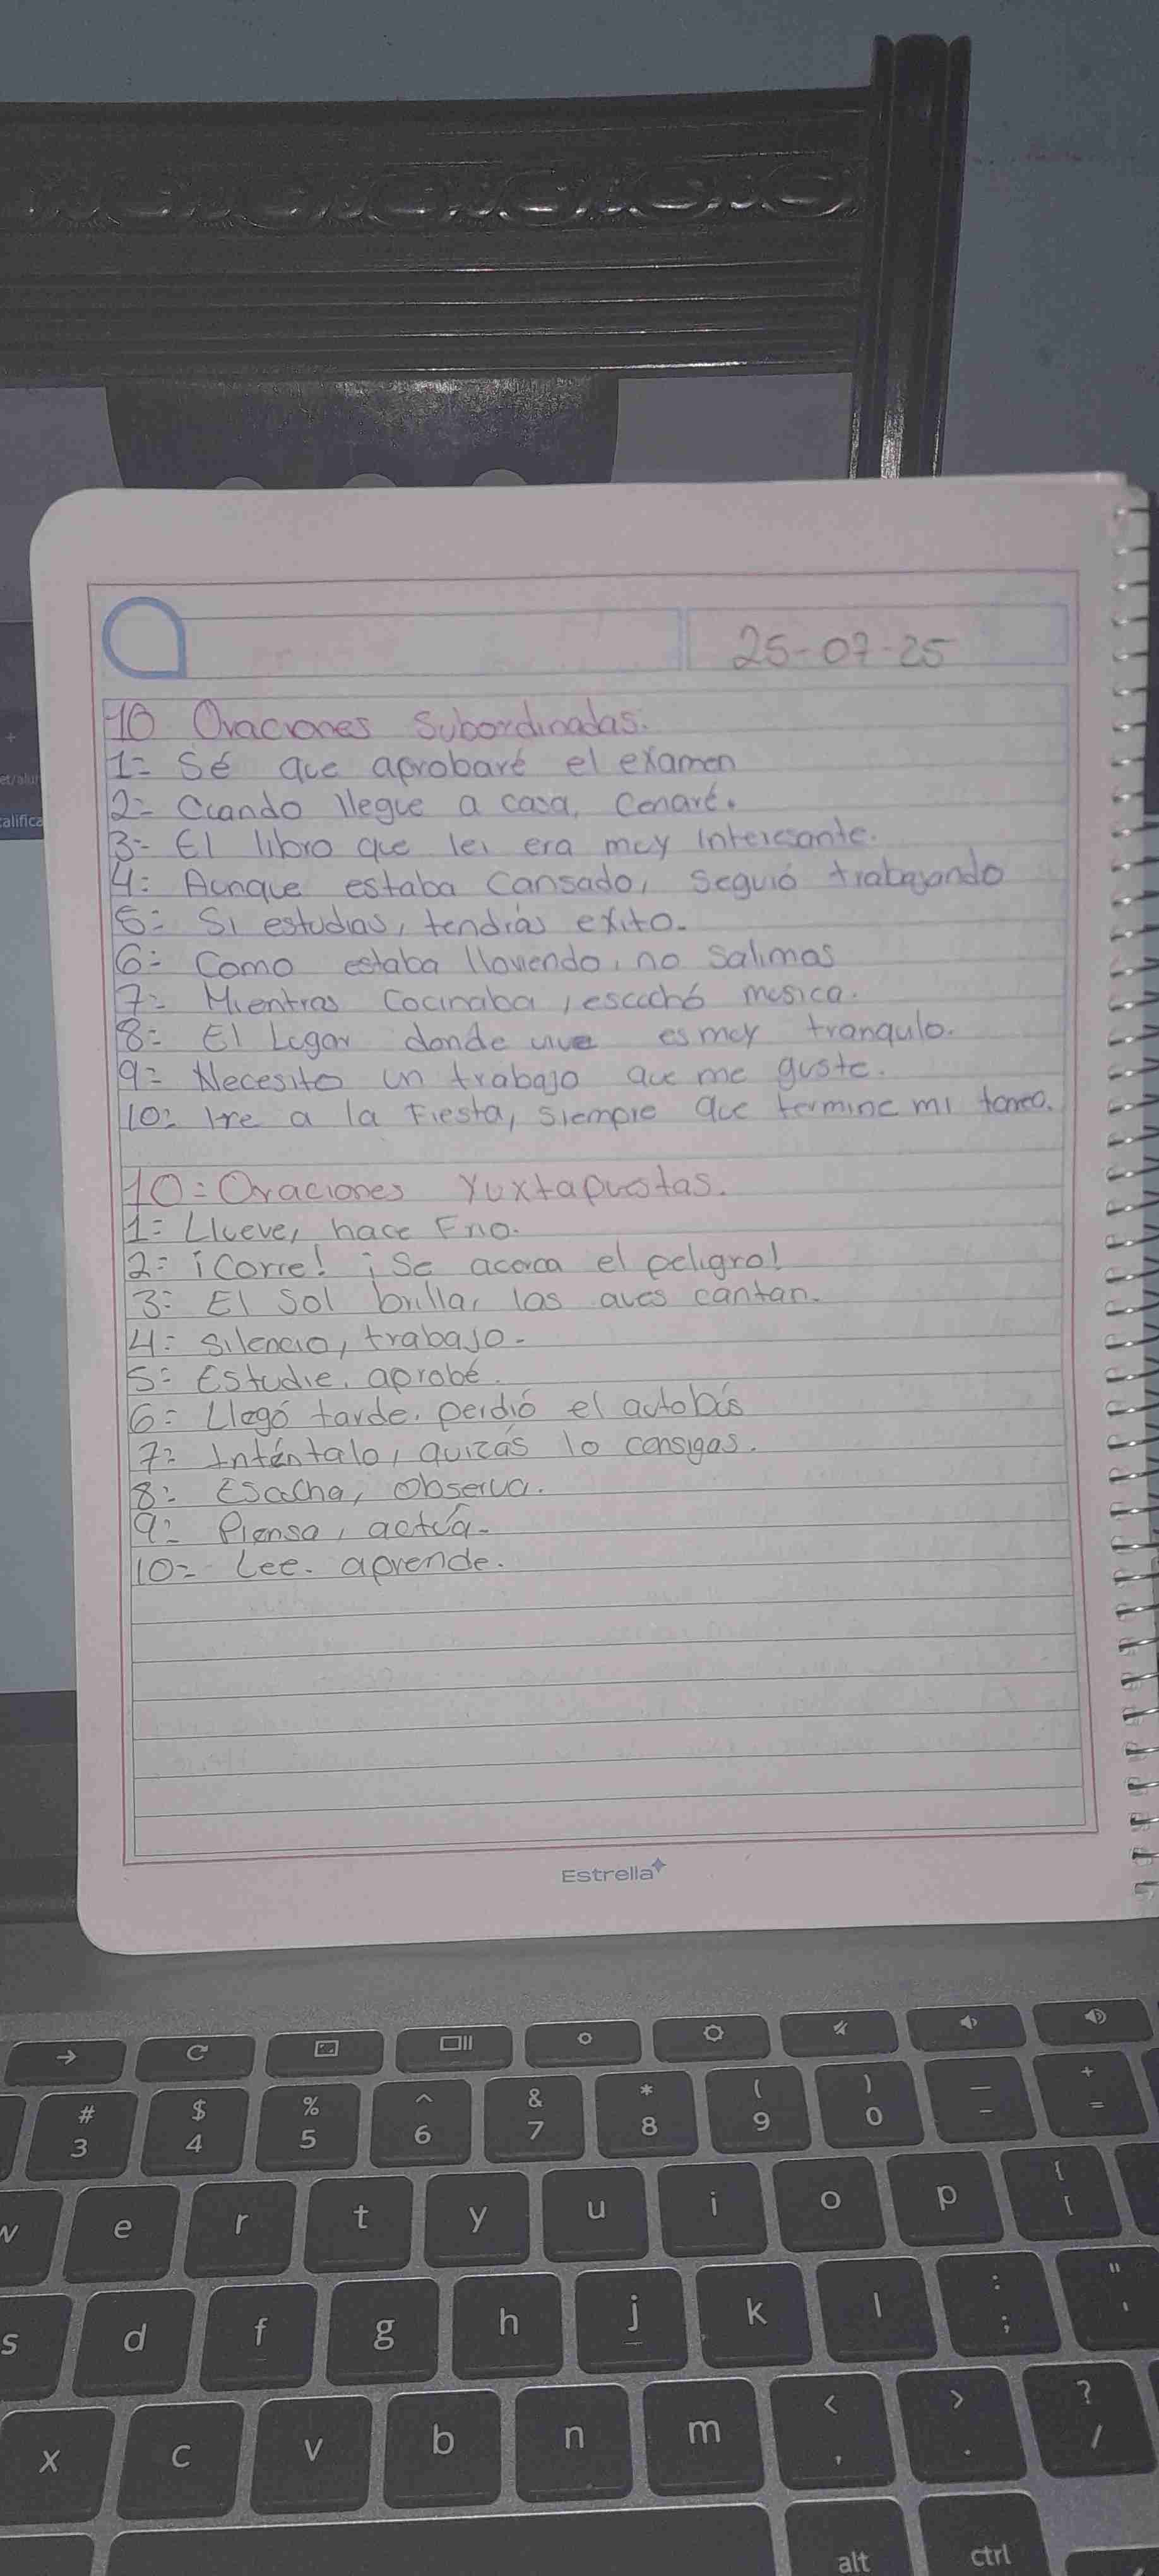 25-07-25
10 Oraciones Subordinadas.
1= Sé que aprobaré el examen
2= Cuando llegue a casa, Cenaré.
3= El libro que lei era muy Interesante.
4= Aunque estaba Cansado, Seguió trabajando
5= Si estudias, tendrás exito.
6= Como estaba lloviendo, no Salimos
7= Mientras Cocinaba, escuchó musica.
8= El Lugar donde vive es muy tranquilo.
9= Necesito un trabajo que me guste.
10= Ire a la Fiesta, Siempre que termine mi tarea.
10= Oraciones Yuxtapuestas.
1= Llueve, hace Frio.
2= ¡Corre! ¡Se acerca el peligro!
3= El Sol brilla, las aves cantan.
4= Silencio, trabajo.
5= Estudie, aprobé.
6= Llegó tarde, perdió el autobús
7= Inténtalo, quizás lo consigas.
8= Escucha, Observa.
9= Piensa, actúa.
10= Lee. aprende.
Estrella
et/alu
alifica
# $ % ^ & * ( ) — +
3 4 5 6 7 8 9 0 - =
w e r t y u i o p { [
s d f g h j k l : ; " '
x c v b n m < , > . ? /
alt ctrl